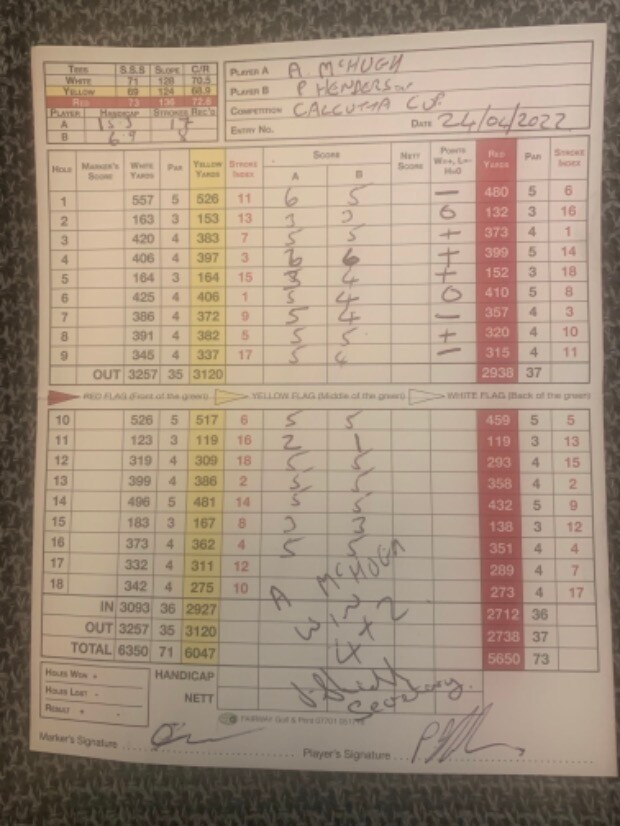 TEES S.S.S SLOPE C/R
WHITE 71 128 70.5
YELLOW 69 124 68.9
RED 73 136 72.8
PLAYER HANDICAP STROKES REC'D
A 15.3 17
B 6.9 8
PLAYER A A McHUGH
PLAYER B P HENDERSON
COMPETITION CALCUTTA CUP
ENTRY NO. DATE 24/04/2022
HOLE MARKER'S SCORE WHITE YARDS PAR YELLOW YARDS STROKE INDEX SCORE A B NETT SCORE POINTS WON+, L-, H=O RED YARDS PAR STROKE INDEX
1 557 5 526 11 6 5 – 480 5 6
2 163 3 153 13 3 3 0 132 3 16
3 420 4 383 7 5 5 + 373 4 1
4 406 4 397 3 6 6 + 399 5 14
5 164 3 164 15 3 4 + 152 3 18
6 425 4 406 1 5 4 0 410 5 8
7 386 4 372 9 5 4 – 357 4 3
8 391 4 382 5 5 5 + 320 4 10
9 345 4 337 17 5 4 – 315 4 11
OUT 3257 35 3120 2938 37
RED FLAG (Front of the green) YELLOW FLAG (Middle of the green) WHITE FLAG (Back of the green)
10 526 5 517 6 5 5 459 5 5
11 123 3 119 16 2 1 119 3 13
12 319 4 309 18 5 5 293 4 15
13 399 4 386 2 5 5 358 4 2
14 496 5 481 14 5 5 432 5 9
15 183 3 167 8 3 3 138 3 12
16 373 4 362 4 5 5 351 4 4
17 332 4 311 12 289 4 7
18 342 4 275 10 273 4 17
A McHUGH
WIN
4 + 2
IN 3093 36 2927 2712 36
OUT 3257 35 3120 2738 37
TOTAL 6350 71 6047 5650 73
HOLES WON
HOLES LOST
RESULT
HANDICAP
NETT
Secretary.
FAIRWAY Golf & Print
Marker's Signature
Player's Signature